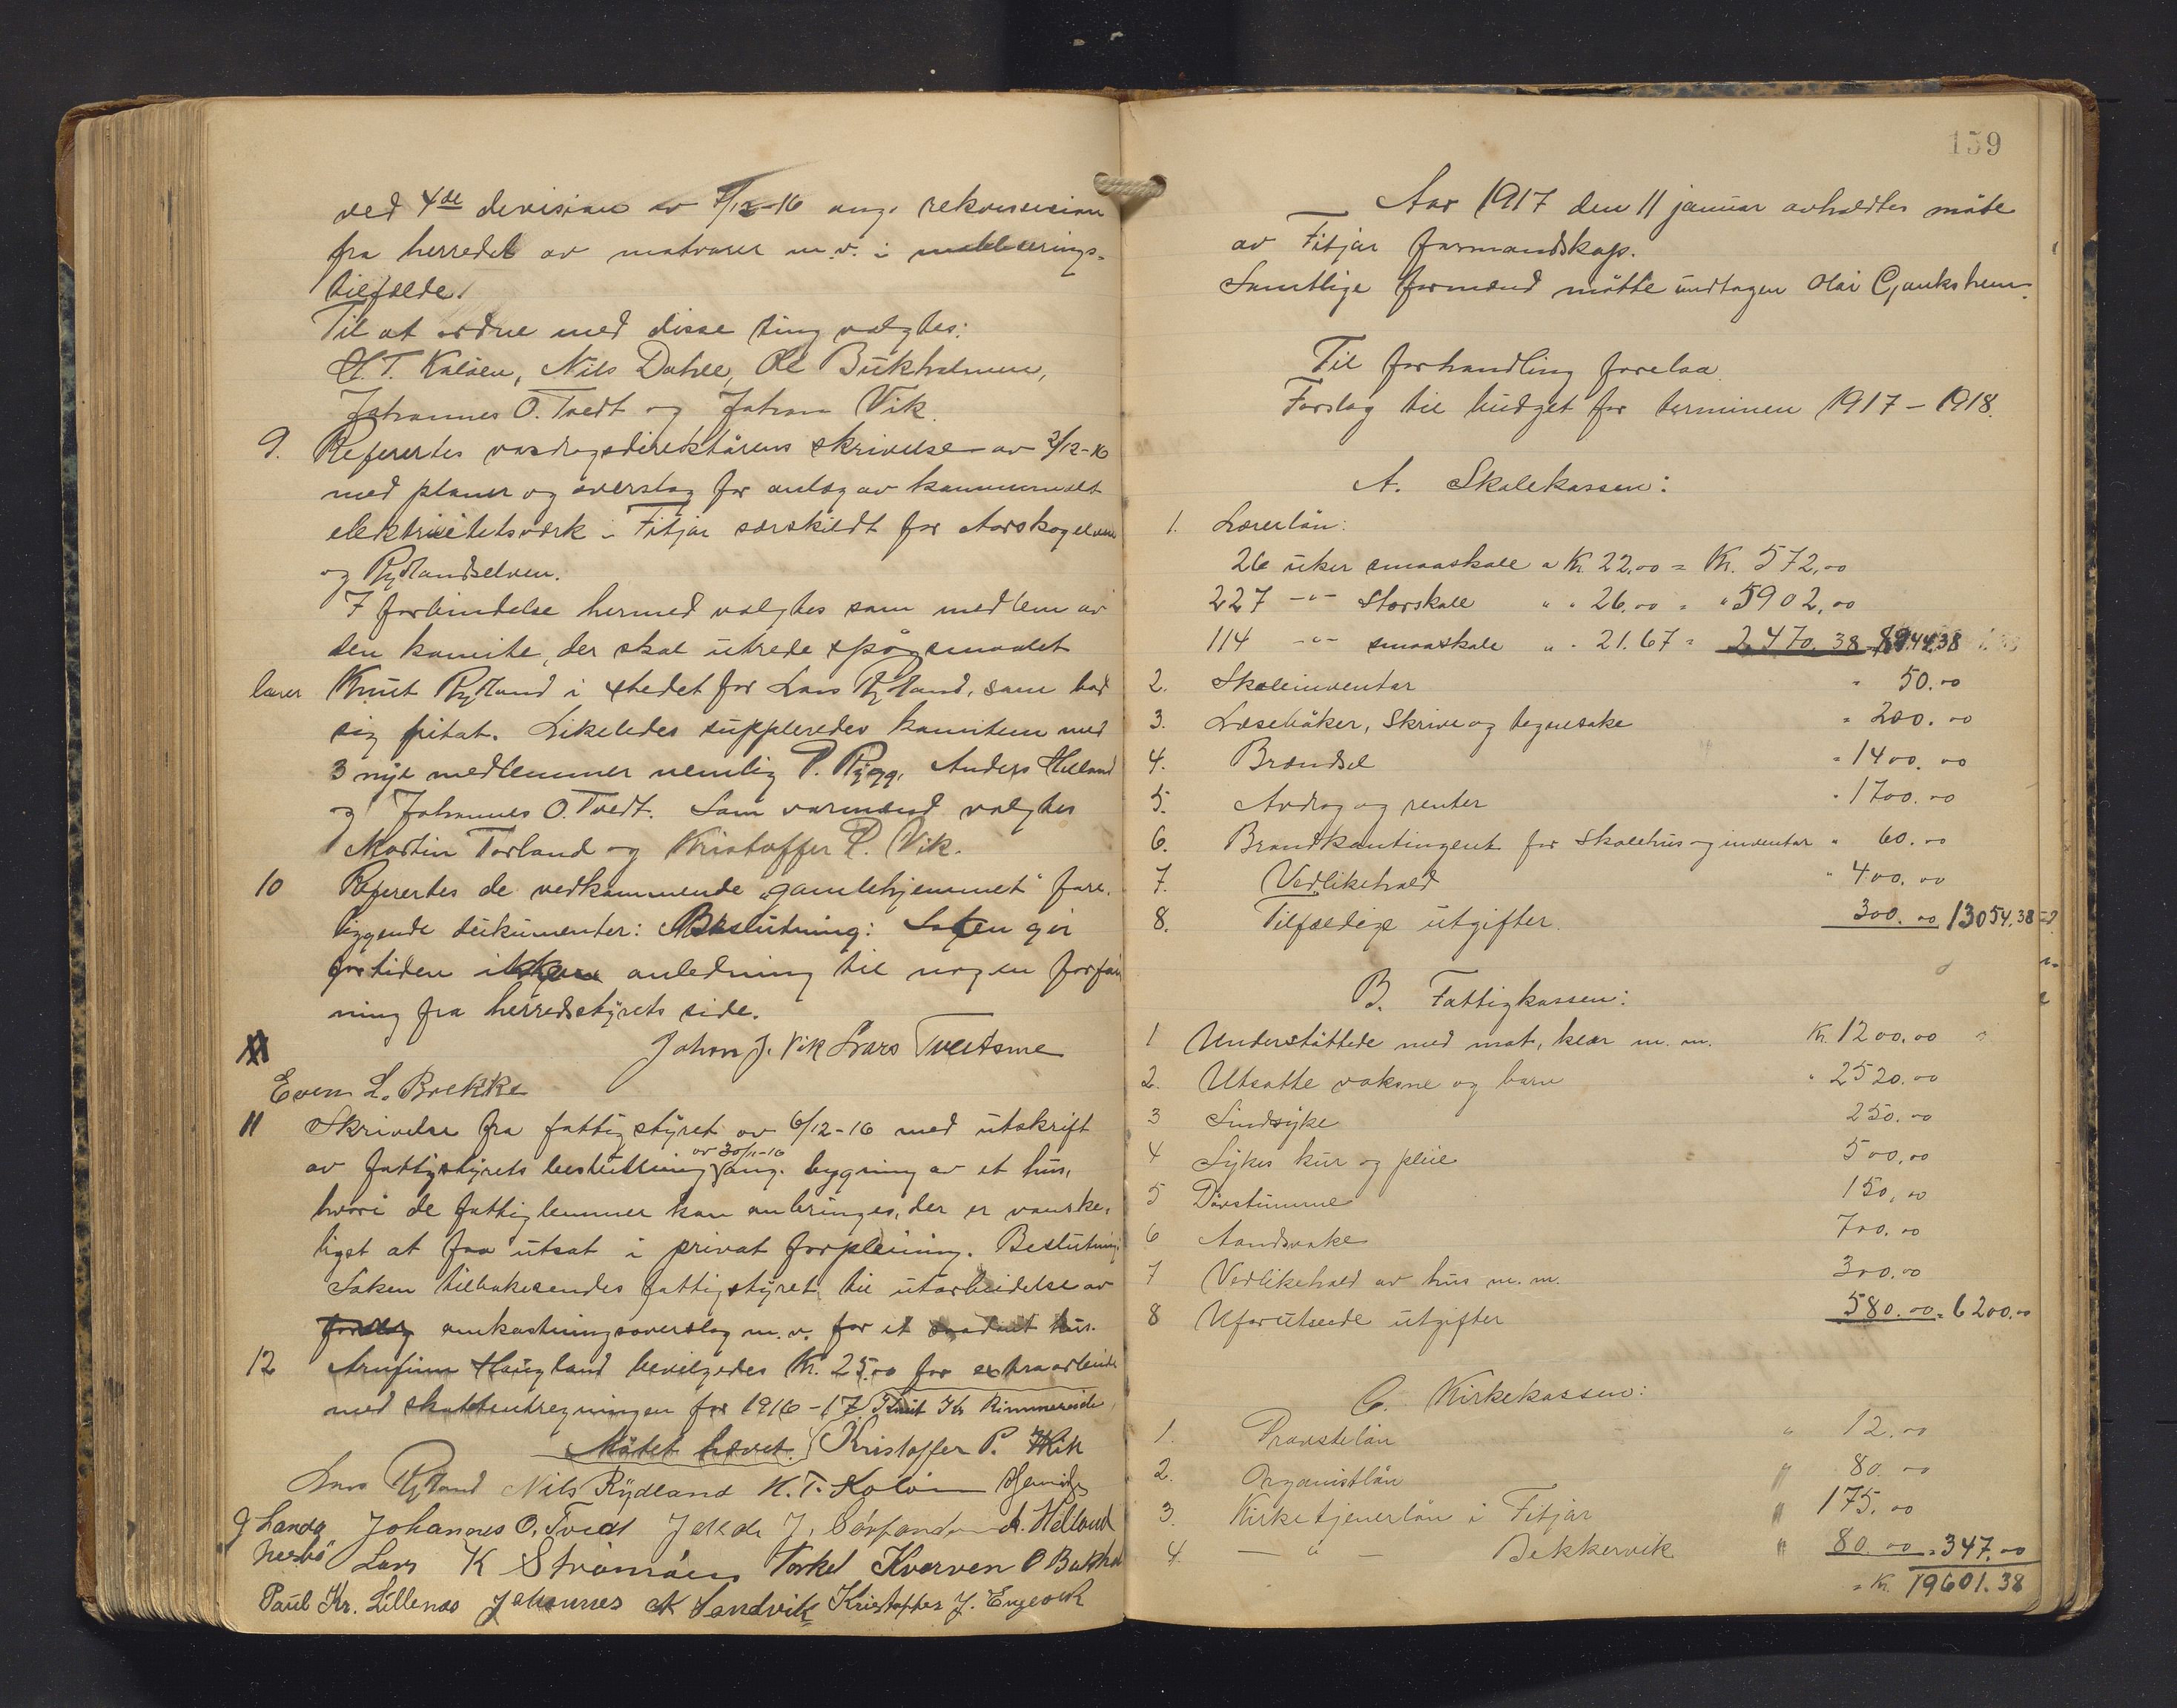 ved 4de devision av 7/12-16 ang. rekvisision
fra herredet av matvarer m.v. i mobliserings-
tilfælde.
Til at ordne med disse ting valgtes:
H. T. Kaløen, Nils Dahle, Ole Bukholmen,
Johannes O. Tvedt og Johan Vik.
9. Referertes vasdragsdirektørens skrivelse av 2/12-16
med planer og overslag for anlæg av kommunalt
elektricitetsværk i Fitjar særskildt for Aarskogelven
og Rydlandselven.
I forbindelse hermed valgtes som medlem av
den komite, der skal utrede spøgsmaalet
lærer Knut Rydland i stedet for Lars Rydland, som bad
sig fritat. Likeledes suppleredes komiteen med
3 nye medlemmer nemlig P. Rygg, Anders Helland
og Johannes O. Tvedt. Som varmænd valgtes
Martin Torland og Kristoffer P. Vik.
10 Referertes de vedkommende "gamlehjemmet" fore-
liggende dukumenter: Beslutning: Saken gir
for tiden ikke anledning til nogen forføi
ning fra herredsstyrets side.
Johan J. Vik Lars Tveitsme
Even L. Brekke
11 Skrivelse fra fattigstyret av 6/12-16 med utskrift
av 30/11-16
av fattigstyrets beslutning ang. bygning av et hus,
hvori de fattiglemmer kan anbringes, der er vanske-
liget at faa utsat i privat forpleining. Beslutning:
Saken tilbakesendes fattigstyret til utarbeidelse av
forslag omkostningsoverslag m.v. for et saadant hus.
12 Arnfinn Haugland bevilgedes Kr. 25.00 for extraarbeide
med skatteutregningen for 1916-17. Knut Kr Rimmereide
Møtet hævet. Kristoffer P. Vik
Lars Rydland Nils Rydland H. T. Kaløen
J Landa Johannes O. Tvedt Jakob J. A. Helland
Nesbø Lars K Strømøen Torkel Kvarven O Bukhol
Paul Kr. Lillenæs Johannes Sandvik Kristoffer J. Engevik
159
Aar 1917 den 11 januar avholdtes møte
av Fitjar formandskap.
Samtlige formænd møtte undtagen Olai
Til forhandling forelaa
Forslag til budget for terminen 1917-1918.
A. Skolekassen:
1. Lærerløn:
26 uker smaaskole a Kr. 22.00 = Kr. 572,00
227 -"- Storskole " " 26.00 = " 5902,00
114 -"- smaaskole " " 21.67 = 2470.38 = 8944.38
2. Skoleinventar " 50.00
3. Læsebøker, Skrive og tegnesake " 200.00
4. Brændsel " 1400.00
5. Avdrag og renter " 1700.00
6. Brandkontingent for Skolehus og inventar " 60.00
7. Vedlikehold " 400.00
8. Tilfældige utgifter 300.00 13054.38
B. Fattigkassen:
1 Understøttede med mat, klær m. m. Kr. 1200.00
2. Utsatte voksne og barn " 2520.00
3 Sindsyke 250.00
4 Sykes kur og pleie 500.00
5 Døvstumme 150.00
6 Aandsvake 700.00
7 Vedlikehold av hus m. m. 300.00
8 Uforutseede utgifter 580.00 = 6200.00
C. Kirkekassen:
1. Provsteløn " 12.00
2. Organistløn " 80.00
3. Kirketjenerløn i Fitjar " 175.00
4. — " — Bekkervik " 80.00 = 347.00
= Kr. 19601.38